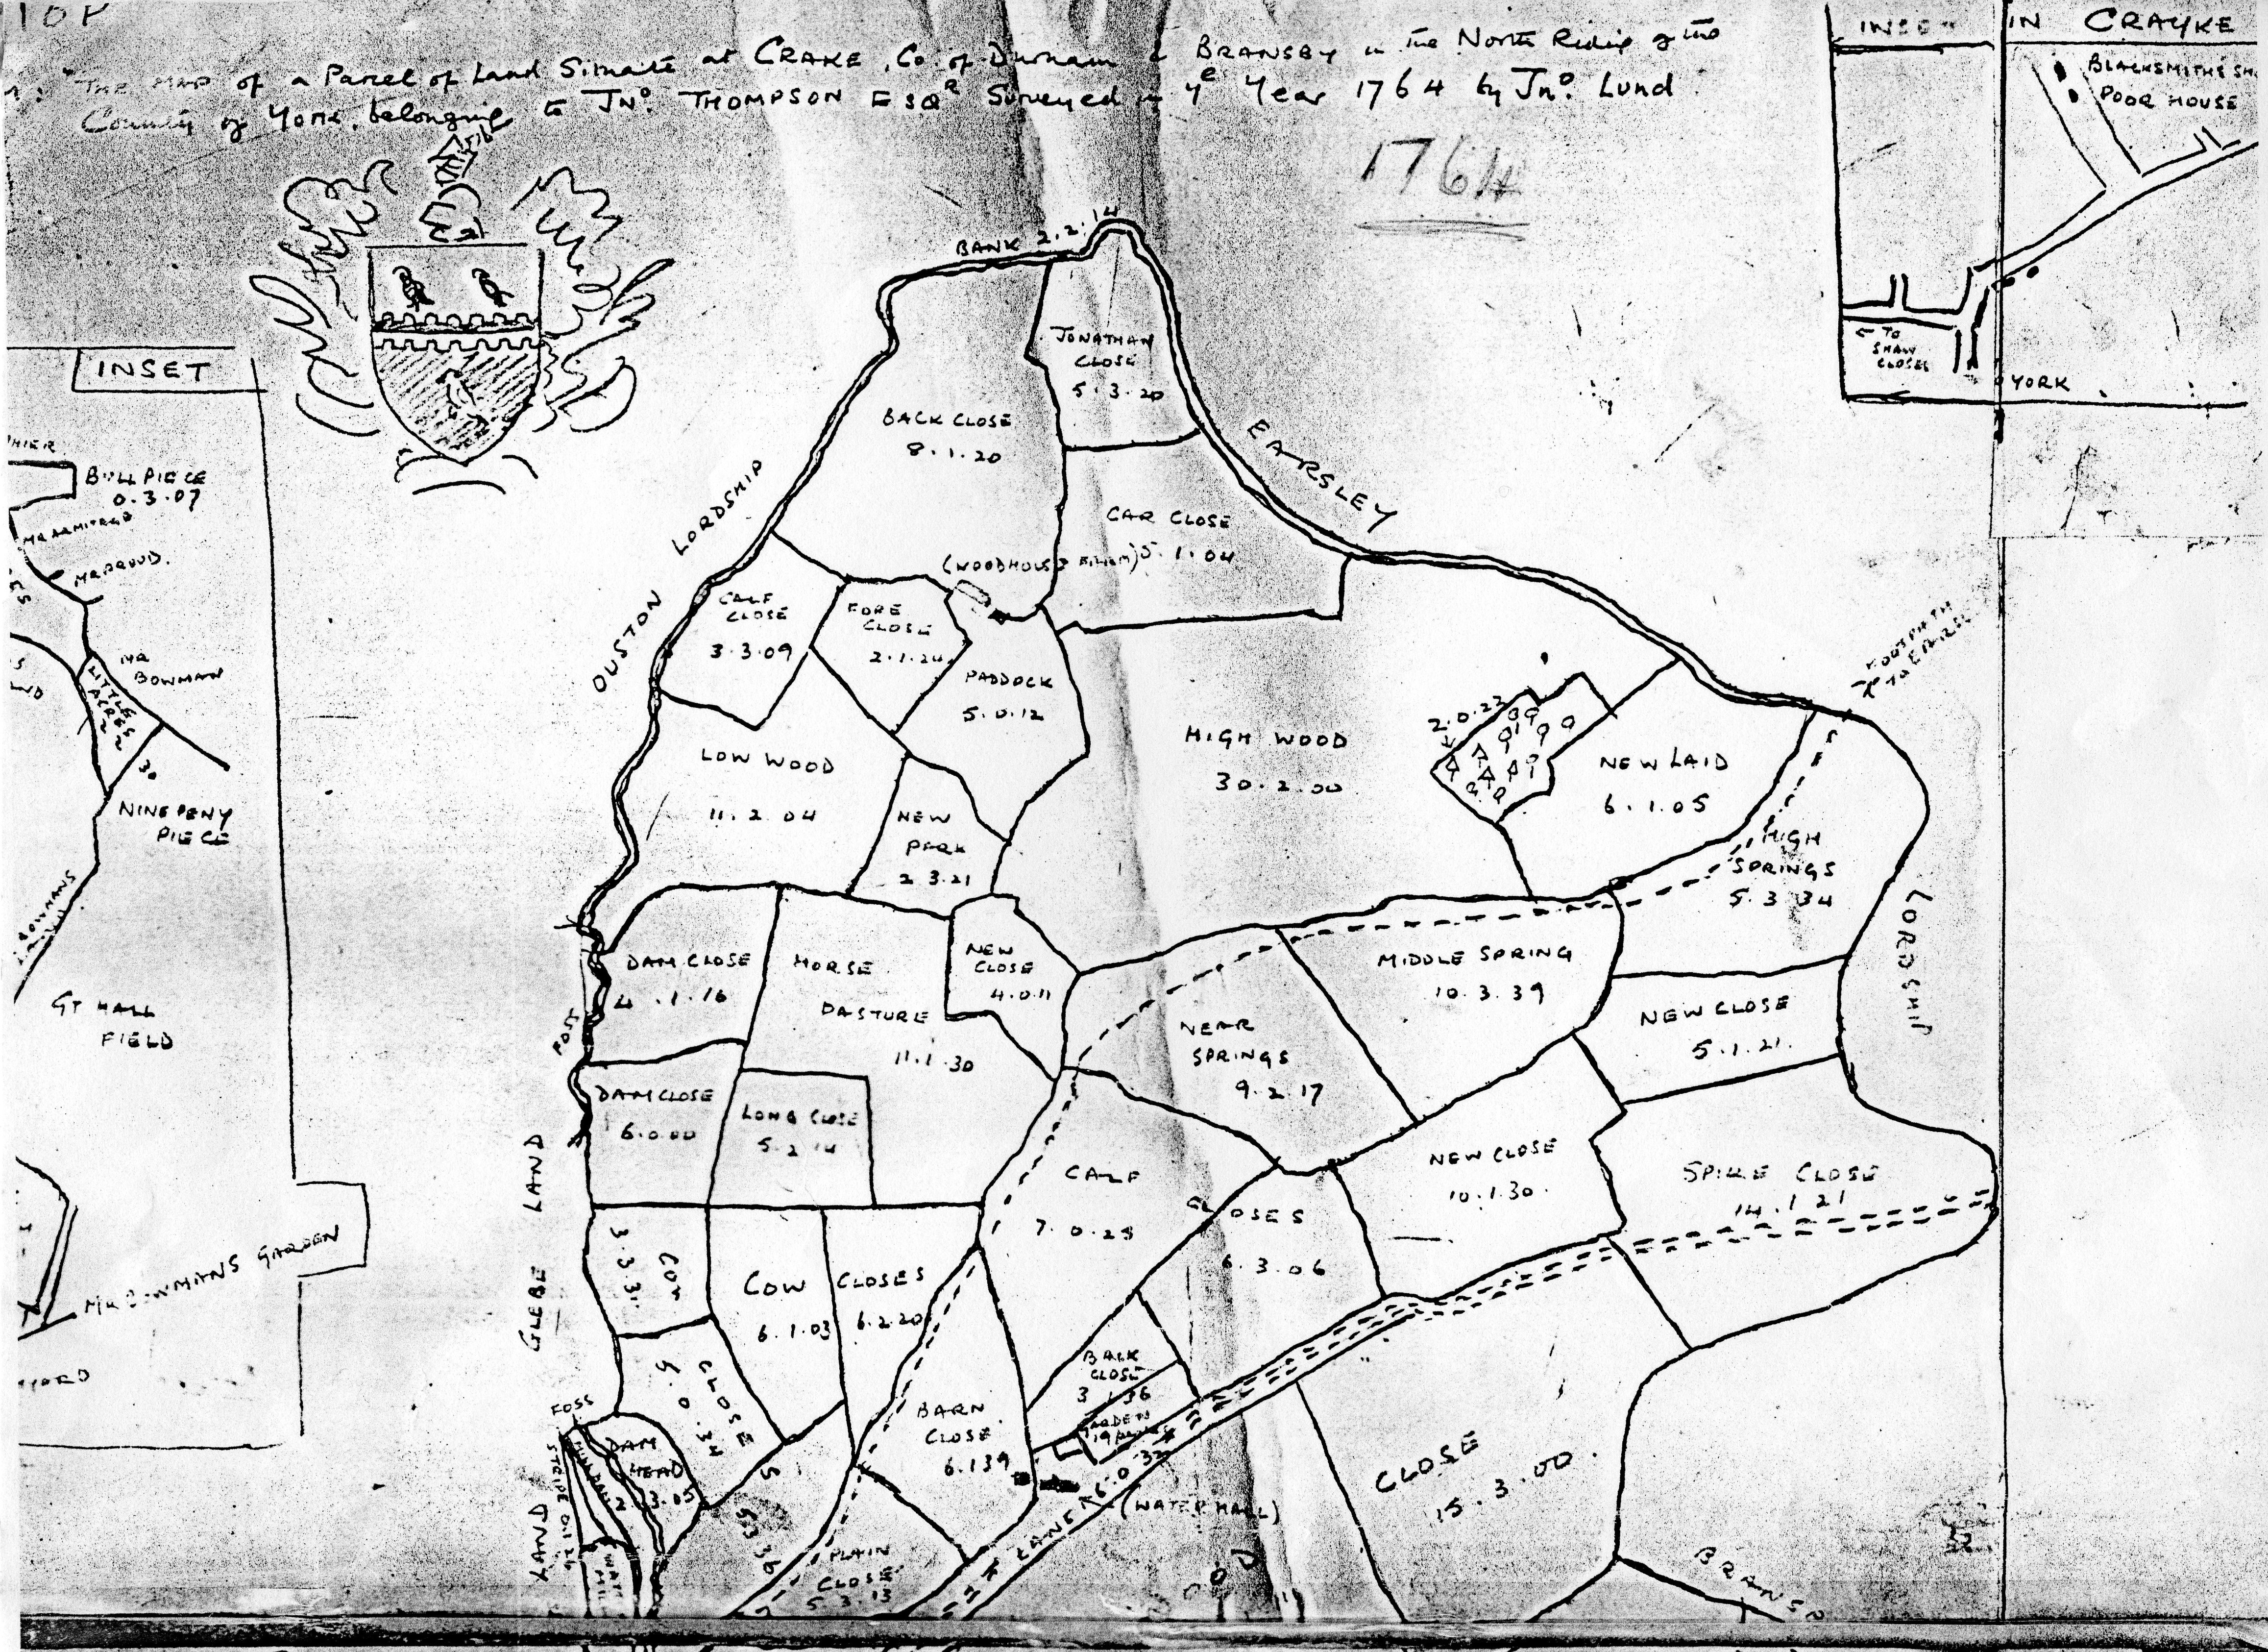 THE MAP of a Parcel of Land Situate at CRAKE, Co. of Durham & BRANSBY in the North Riding of the
County of YORK, belonging to JNO. THOMPSON ESQR Surveyed in ye Year 1764 by Jno. Lund
1764
INSET IN CRAYKE
BLACKSMITH'S
POOR HOUSE
← TO
SHAW
CLOSES
YORK
INSET
BULL PIECE
0.3.07
MR ARMITAGE
MR PROUD.
MR
BOWMAN
LITTLE
ACRES
2 2
30
NINEPENY
PIECE
BOWMANS
GT HALL
FIELD
MR BOWMANS GARDEN
BANK 2.2.14
JONATHAN
CLOSE
5.3.20
BACK CLOSE
8.1.20
EARSLEY
CAR CLOSE
5.1.04
(WOODHOUSE FARM)
OUSTON LORDSHIP
CALF
CLOSE
3.3.09
FORE
CLOSE
2.1.24
PADDOCK
5.0.12
FOOTPATH
TO EARSL
LOW WOOD
11.2.04
NEW
PARK
2 3.21
HIGH WOOD
30.2.00
2.0.22
NEW LAID
6.1.05
HIGH
SPRINGS
5.3 34
LORDSHIP
DAM CLOSE
4.1.16
HORSE
PASTURE
11.1.30
NEW
CLOSE
4.0.11
NEAR
SPRINGS
9.2.17
MIDDLE SPRING
10.3.39
NEW CLOSE
5.1.21.
FOSS
DAM CLOSE
6.0.00
LONG CLOSE
5.2 14
CALF CLOSES
7.0.25
6.3.06
NEW CLOSE
10.1.30.
SPIKE CLOSE
14.1 21
GLEBE LAND
COW
3.3.31
COW CLOSES
6.1.03 6.2.20
CLOSE
5.0.34
BACK
CLOSE
3 1.36
GARDEN
BARN
CLOSE
6.139
LANE 6.0.32
(WATER HALL)
CLOSE
15.3.00.
FOSS
DAM
HEAD
2.3.05
STRIPE
LAND
PLAIN
CLOSE
5 3.13
BRANSB